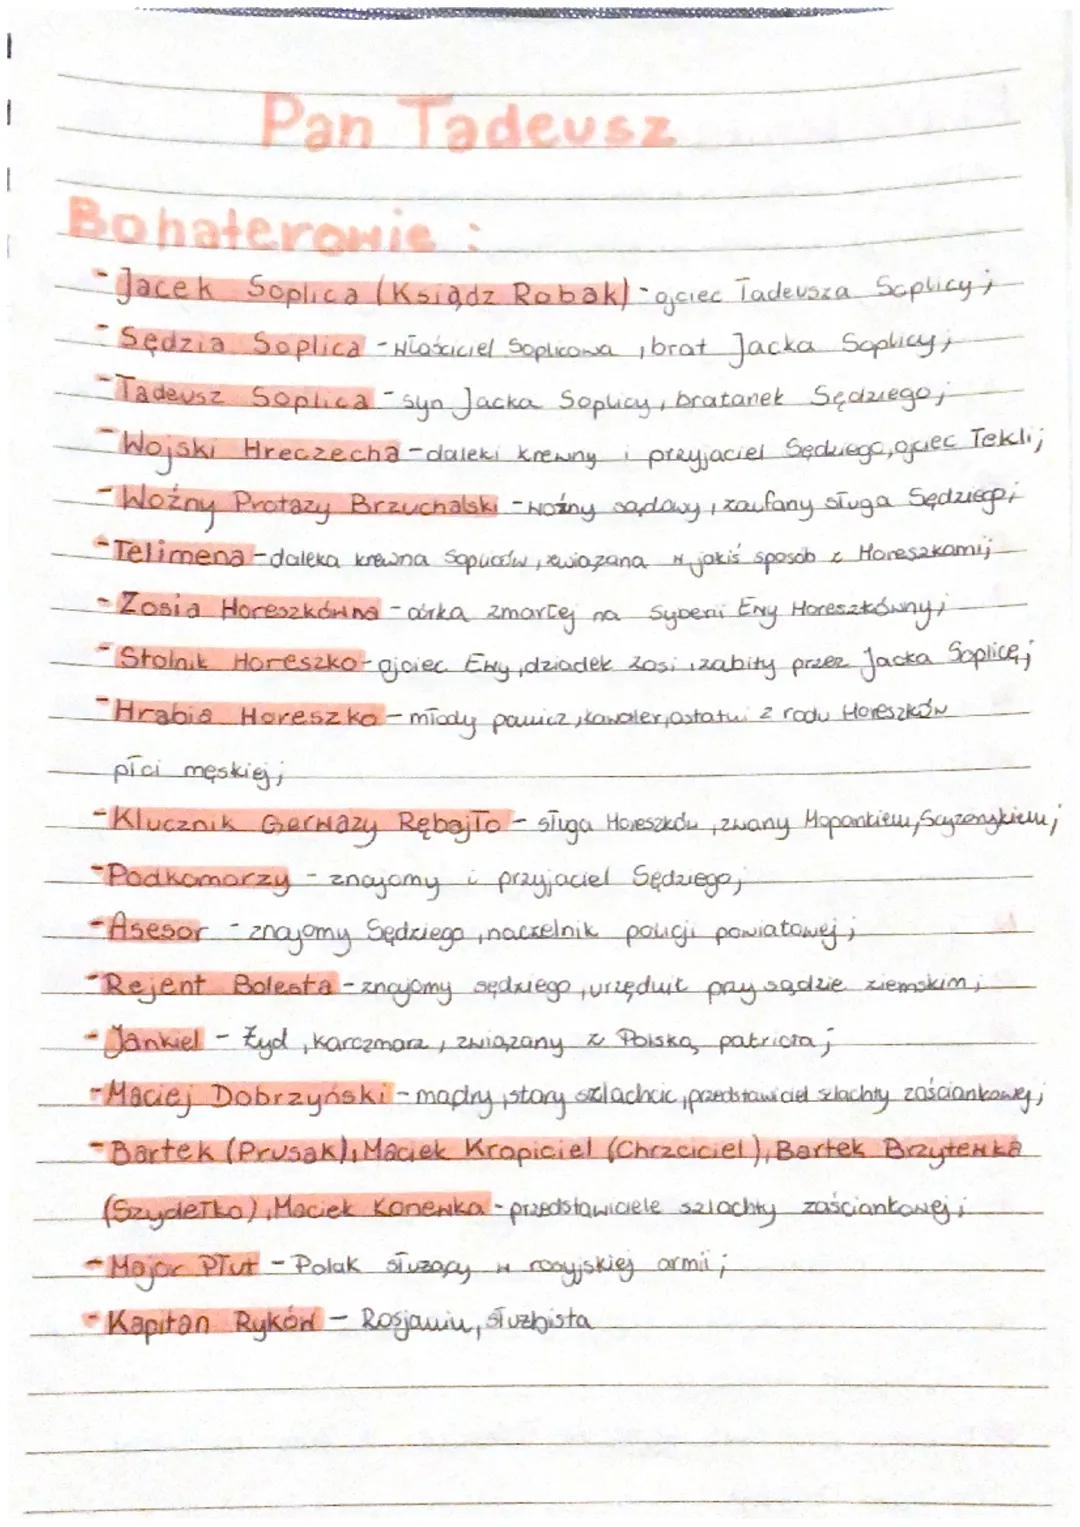 Pan Tadeusz
Bohaterowie :
- Jacek Soplica (Ksiądz Robak) - ojciec Tadeusza Soplicy;
- Sędzia Soplica - właściciel Soplicowa, brat Jacka Soplicy;
- Tadeusz Soplica - syn Jacka Soplicy, bratanek Sędziego;
- Wojski Hreczecha - daleki krewny i przyjaciel Sędziego, ojciec Tekli;
- Woźny Protazy Brzuchalski - woźny sądowy, zaufany sługa Sędziego;
- Telimena - daleka krewna Sopliców, związana w jakiś sposób z Horeszkami;
- Zosia Horeszkówna - córka zmarłej na Syberii Ewy Horeszkówny;
- Stolnik Horeszko - ojciec Ewy, dziadek Zosi, zabity przez Jacka Soplicę;
- Hrabia Horeszko - młody panicz, kawaler, ostatni z rodu Horeszków
płci męskiej;
- Klucznik Gerwazy Rębajło - sługa Horeszków, zwany Mopankiem, Scyzorykiem;
- Podkomorzy - znajomy i przyjaciel Sędziego;
- Asesor - znajomy Sędziego, naczelnik policji powiatowej;
- Rejent Bolesta - znajomy sędziego, urzędnik przy sądzie ziemskim;
- Jankiel - Żyd, karczmarz, związany z Polską, patriota;
- Maciej Dobrzyński - mądry, stary szlachcic, przedstawiciel szlachty zaściankowej;
- Bartek (Prusak), Maciek Kropiciel (Chrzciciel), Bartek Brzytewka
(Szydełko), Maciek Konewka - przedstawiciele szlachty zaściankowej;
- Major Płut - Polak służący w rosyjskiej armii;
- Kapitan Ryków - Rosjanin, służbista